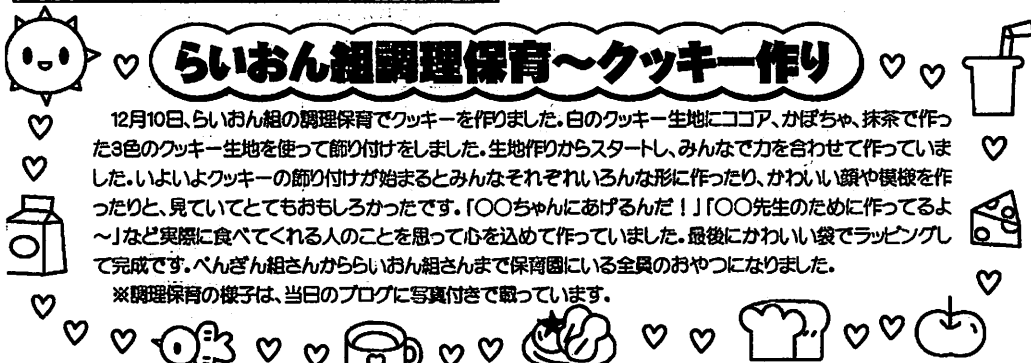 らいおん組調理保育～クッキー作り
12月10日、らいおん組の調理保育でクッキーを作りました。白のクッキー生地にココア、かぼちゃ、抹茶で作っ
た3色のクッキー生地を使って飾り付けをしました。生地作りからスタートし、みんなで力を合わせて作っていま
した。いよいよクッキーの飾り付けが始まるとみんなそれぞれいろんな形に作ったり、かわいい顔や模様を作
ったりと、見ていてとてもおもしろかったです。「○○ちゃんにあげるんだ！」「○○先生のために作ってるよ
～」など実際に食べてくれる人のことを思って心を込めて作っていました。最後にかわいい袋でラッピングし
て完成です。ぺんぎん組さんかららいおん組さんまで保育園にいる全員のおやつになりました。
※調理保育の様子は、当日のブログに写真付きで載っています。